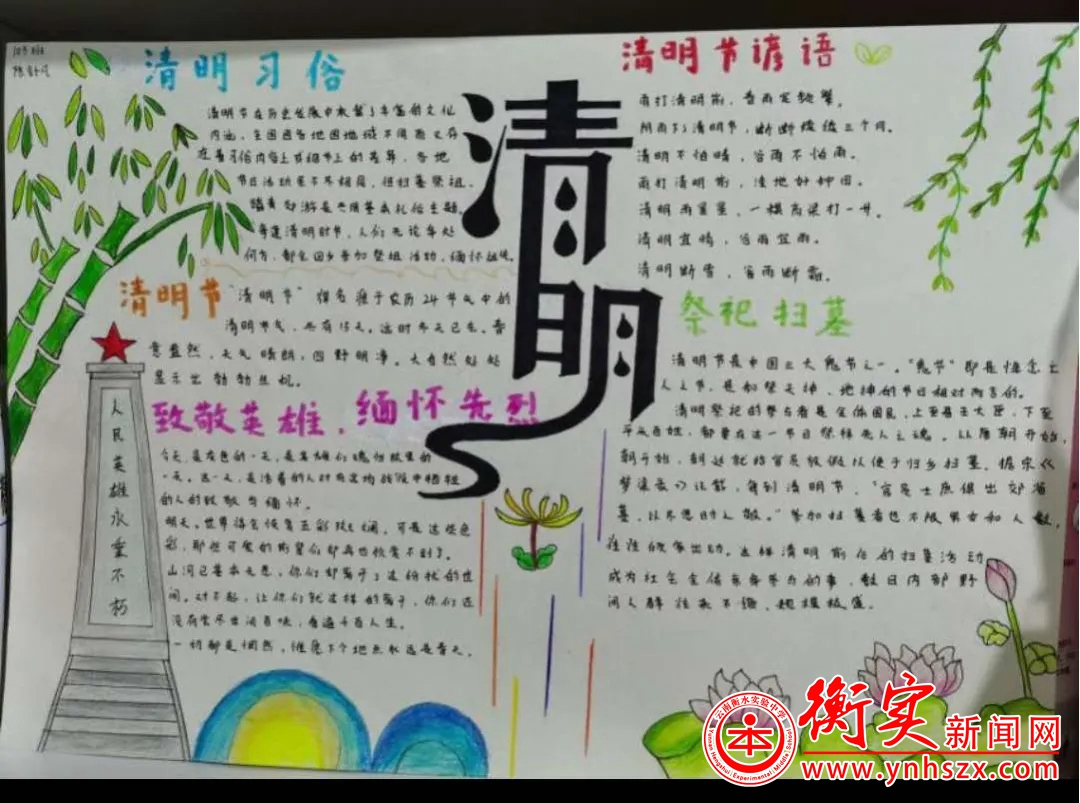 103班
清明习俗
清明节在历史发展中承载了丰富的文化
内涵,全国因各地因地域不同而又存
在着习俗内容上或细节上的差异,各地
节日活动虽不尽相同,但扫墓祭祖、
踏青郊游是共同基本礼俗主题。
每逢清明时节,人们无论身处
何方,都会回乡参加祭祖活动,缅怀祖先。
清明节
"清明节"得名源于农历24节气中的
清明节气,共有15天。这时冬天已去,春
意盎然,天气晴朗,四野明净。大自然处处
显示出勃勃生机。
致敬英雄,缅怀先烈
今天,是灰色的一天,是英雄们魂归故里的
一天。这一天,是活着的人对在这场战役中牺牲
的人的致敬与缅怀。
明天,世界将会恢复五彩斑斓,可是这些色
彩,那些可爱的斯贤们却再也欣赏不到了。
山河已基本无恙,你们却离于了这纷扰的世
间。对不起,让你们就这样的离于,你们还
没有尝尽世间百味,看遍千百人生。
一切都是惘然,惟愿下个地点永远是春天。
人民英雄永垂不朽
清明
清明节谚语
雨打清明前,春雨定频繁。
阴雨下了清明节,断断续续三个月。
清明不怕晴,谷雨不怕雨。
雨打清明前,洼地好种田。
清明雨星星,一棵高粱打一升。
清明宜晴,谷雨宜雨。
清明断雪,谷雨断霜。
祭祀扫墓
清明节是中国三大鬼节之一。"鬼节"即是悼念亡
人之节,是和祭天神、地神的节日相对而言的。
清明祭祀的参与者是全体国民,上至君王大臣,下至
平头百姓,都要在这一节日祭拜先人之魂。从唐朝开始,
朝开始,朝廷就给官员放假以便于归乡扫墓。据宋《
梦粱录》记载,每到清明节,"官员士庶俱出郊省
墓,以尽思时之敬。"参加扫墓者也不限男女和人数,
往往倾家出动。这样清明前后的扫墓活动
成为社会全体亲身参与的事,数日内郊野
间人群往来不绝,规模极盛。
云南衡水实验中学
本
Yunnan Hengshui Experimental Middle School
衡实新闻网
www.ynhszx.com